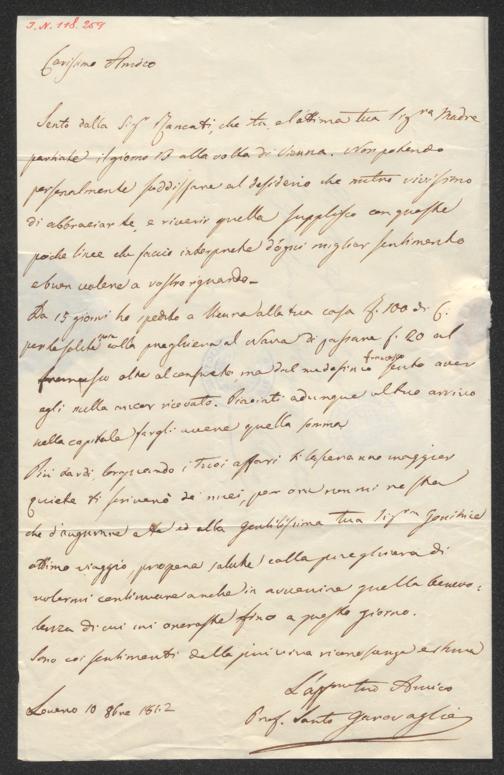 I.N. 118.259
Carissimo Amico
Sento dalla Sig.ra che tu, e l'ottima tua Sig.ra Madre
partiate il giorno 13 alla volta di Vienna. Non potendo
personalmente soddisfare al desiderio che nutro vivissimo
di abbracciar te, e riverir quella supplisco con queste
poche linee che faccio interprete d'ogni miglior sentimento
e buon volere a vostro riguardo.
Da 15 giorni ho spedito a Vienna alla tua casa f. 100 di C.
per le solite colla preghiera al Nava di passare f. 20 al
Francesco oltre al consueto ma dal medesimo Francesco sento aver
egli nulla ancor ricevuto. Piacciati adunque al tuo arrivo
nella capitale fargli avere quella somma
Più tardi, quando i tuoi affari ti lasceranno maggior
quiete ti scriverò de' miei, per ora non mi resta
che d'augurare a te ed alla gentilissima tua Sig.ra Genitrice
ottimo viaggio, prospera salute colla preghiera di
volermi continuare anche in avvenire quella benevo-
lenza di cui mi onoraste fino a questo giorno.
Sono coi sentimenti della più viva riconoscenza e stima
L'app.mo tuo Amico
Loveno 10 8bre 1862
Prof. Santo Garovaglio